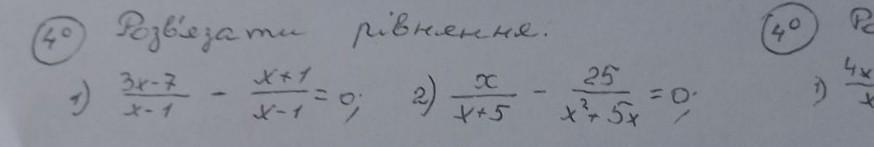 4° Розв'язати рівняння. 4°
1) (3x-7)/(x-1) - (x+1)/(x-1) = 0; 2) x/(x+5) - 25/(x²+5x) = 0; 1) 4x